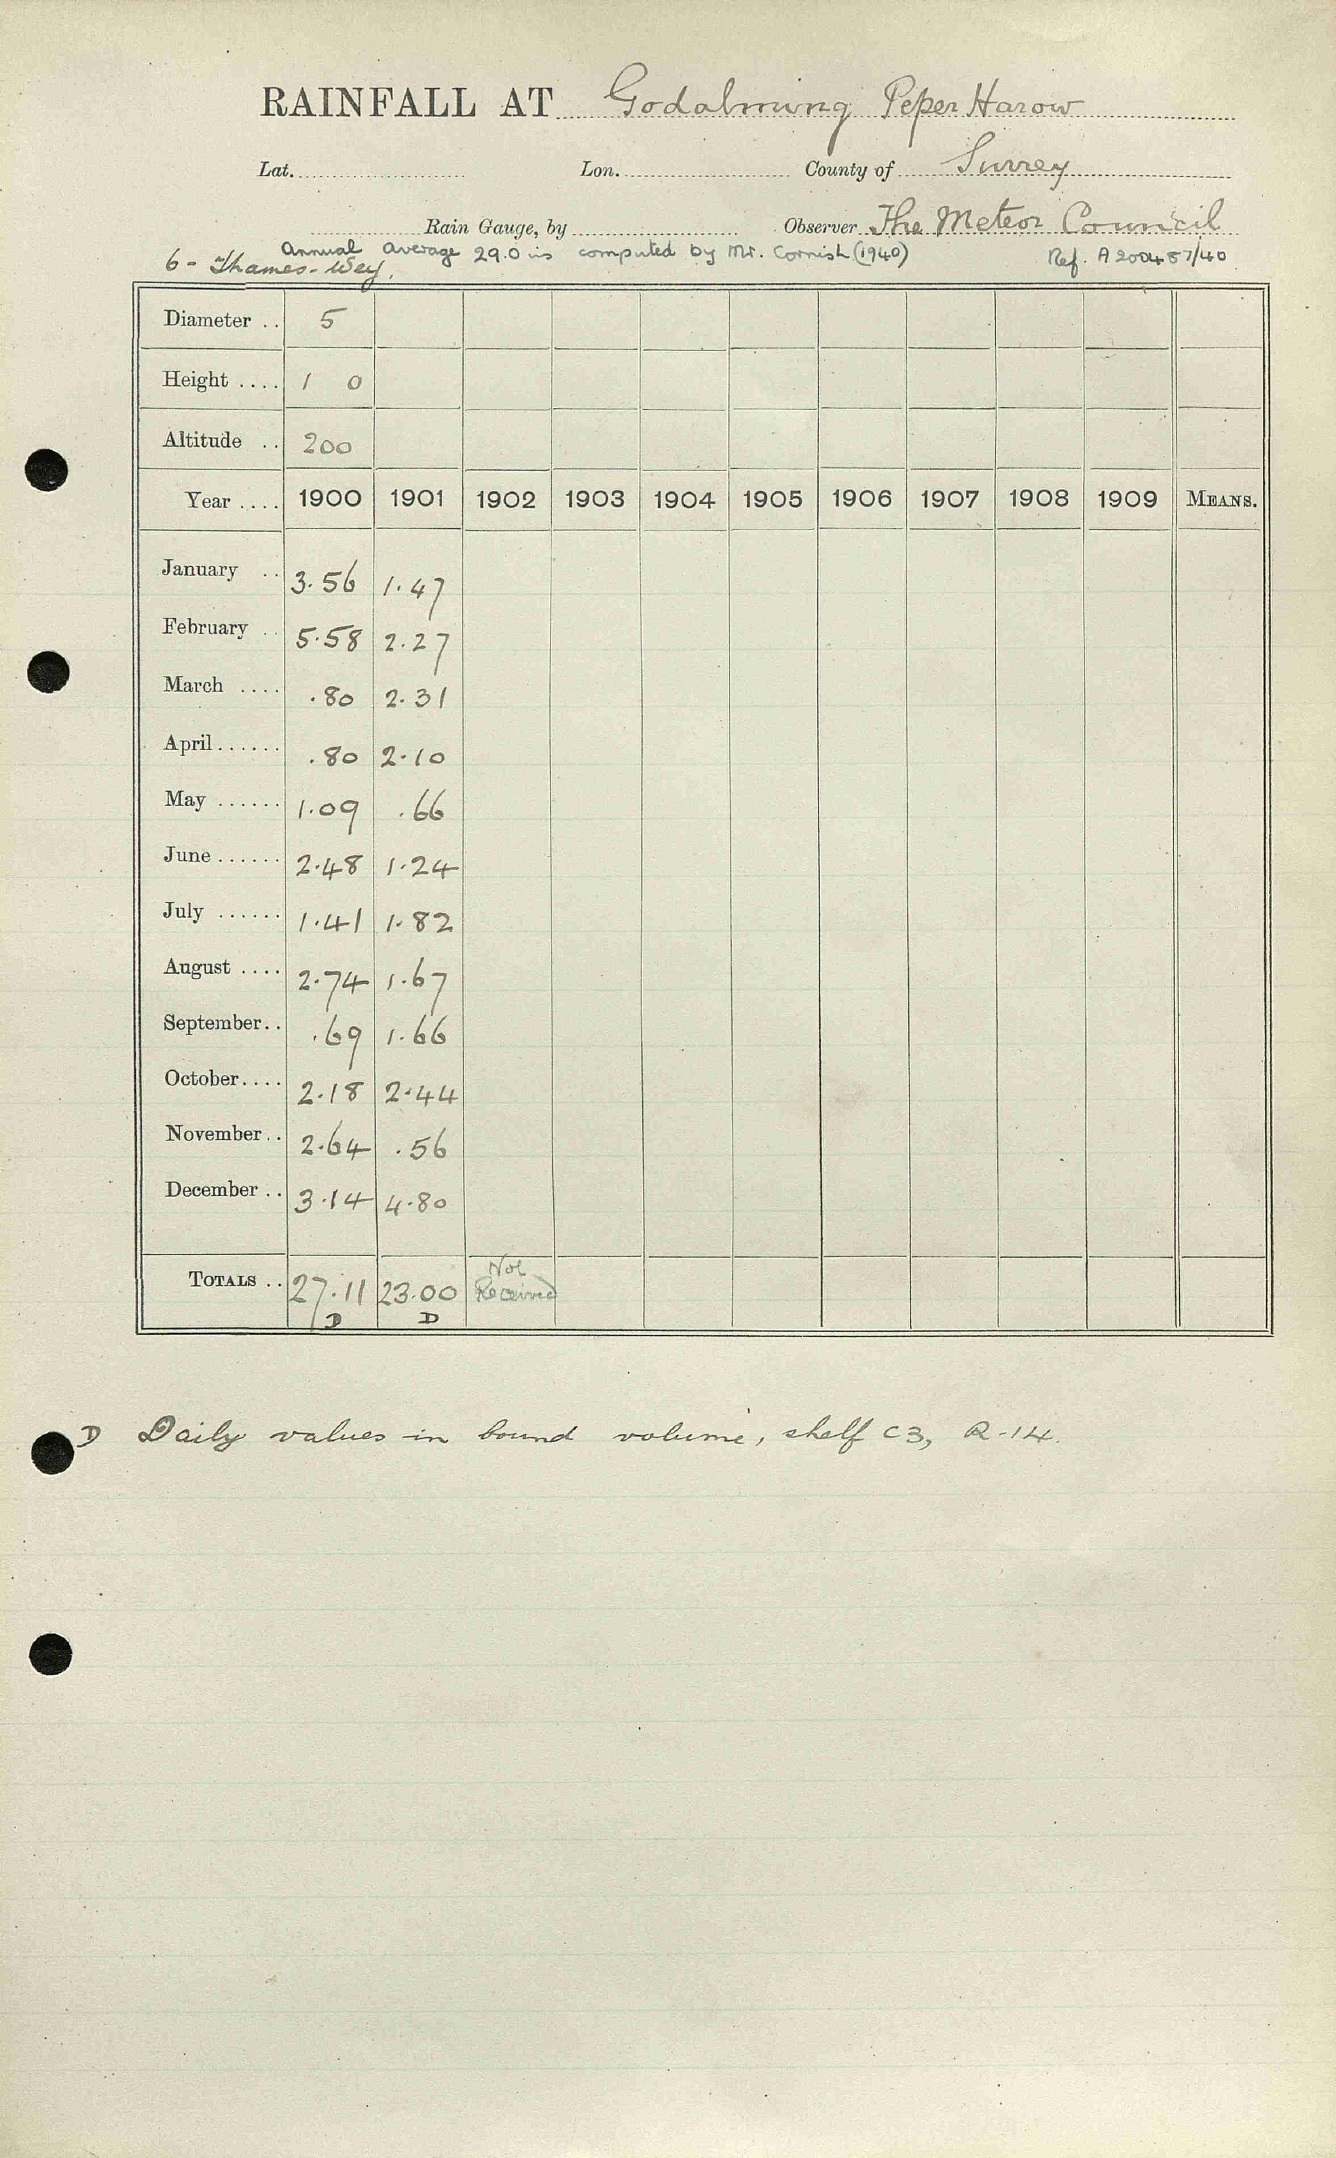 RAINFALL AT Godalming Peper Harow
Lat. Lon. County of Surrey
Rain Gauge, by Observer The Meteor Council
Annual average 29.0 ins computed by Mr. Cornish (1940) Ref. A200487/40
6 - Thames - Wey.
Diameter .. 5
Height .... 1 0
Altitude .. 200
Year .... 1900 1901 1902 1903 1904 1905 1906 1907 1908 1909 MEANS.
January .. 3.56 1.47
February .. 5.58 2.27
March .... .80 2.31
April ...... .80 2.10
May ...... 1.09 .66
June ...... 2.48 1.24
July ...... 1.41 1.82
August .... 2.74 1.67
September .. .69 1.66
October .... 2.18 2.44
November .. 2.64 .56
December .. 3.14 4.80
TOTALS .. 27.11 23.00 Not Received
D D
D Daily values in bound volume, shelf C3, R-14.